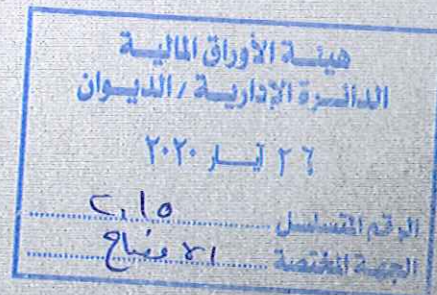 هيئة الأوراق المالية
الدائرة الإدارية / الديوان
٢٦ أيار ٢٠٢٠
الرقم المتسلسل ٢٠١٥
الجهة المختصة الافصاح